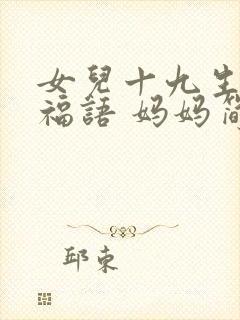 女兒十九生
福語 妈妈简
邱束